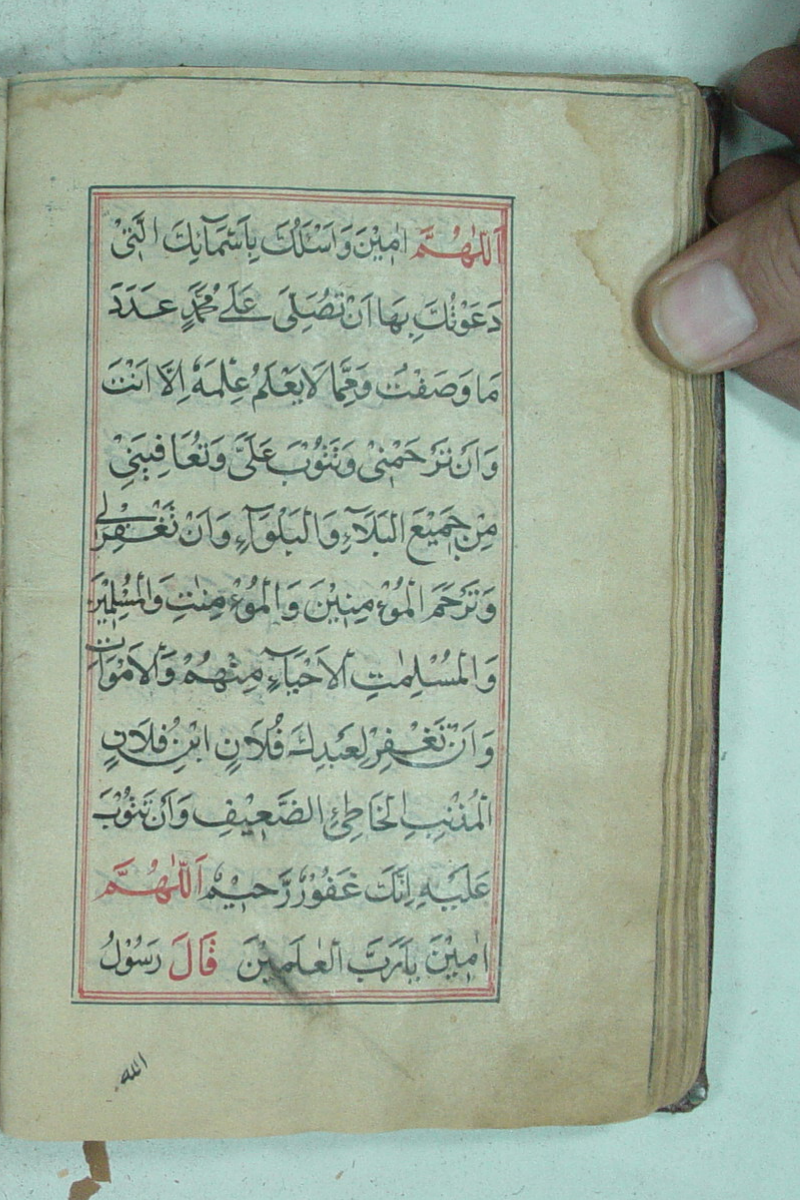 اَللّٰهُمَّ اٰمِيْنَ وَاَسْئَلُكَ بِاَسْمَآئِكَ الَّتِيْ
دَعَوْتُكَ بِهَا اَنْ تُصَلِّيَ عَلٰے مُحَمَّدٍ عَدَدَ
مَا وَصَفْتُ وَمِمَّا لَا يَعْلَمُ عِلْمَهٗ اِلَّا اَنْتَ
وَاَنْ تَرْحَمْنِيْ وَتَتُوْبَ عَلَيَّ وَتُعَافِيَنِيْ
مِنْ جَمِيْعِ الْبَلَآءِ وَالْبَلْوَآءِ وَاَنْ تَغْفِرْ لِي
وَتَرْحَمَ الْمُؤْمِنِيْنَ وَالْمُؤْمِنٰتِ وَالْمُسْلِمِيْنَ
وَالْمُسْلِمٰتِ الْاَحْيَآءِ مِنْهُمْ وَالْاَمْوَاتِ
وَاَنْ تَغْفِرْ لِعَبْدِكَ فُلَانٍ ابْنِ فُلَانٍ
الْمُذْنِبِ الْخَاطِئِ الضَّعِيْفِ وَاَنْ تَتُوْبَ
عَلَيْهِ اِنَّكَ غَفُوْرٌ رَّحِيْمٌ اَللّٰهُمَّ
اٰمِيْنَ يَارَبَّ الْعٰلَمِيْنَ قَالَ رَسُوْلُ
الله